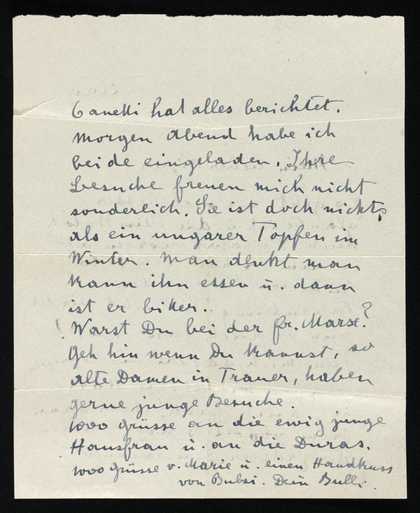 Canetti hat alles berichtet.
Morgen Abend habe ich
beide eingeladen. Ihre
Besuche freuen mich nicht
sonderlich. Sie ist doch nichts
als ein ungarer Topfen im
Winter. Man denkt man
kann ihn essen u. dann
ist er biker.
Warst Du bei der fr. Marx?
Geh hin wenn Du kannst, so
alte Damen in Trauer, haben
gerne junge Besuche.
1000 Grüsse an die ewig junge
Hausfrau u. an die Duras.
1000 Grüsse v. Marie u. einen Handkuss
von Bubsi. Dein Bulli.